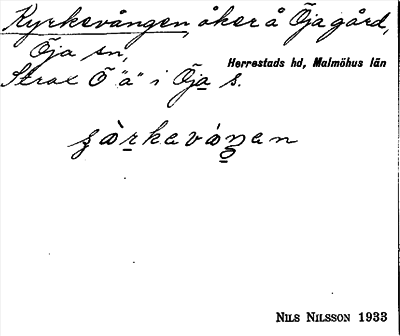 Kyrkevången, åker å Öja gård,
Öja sn,
Herrestads hd, Malmöhus län
Strax Ö "a" i Öja s.
NILS NILSSON 1933